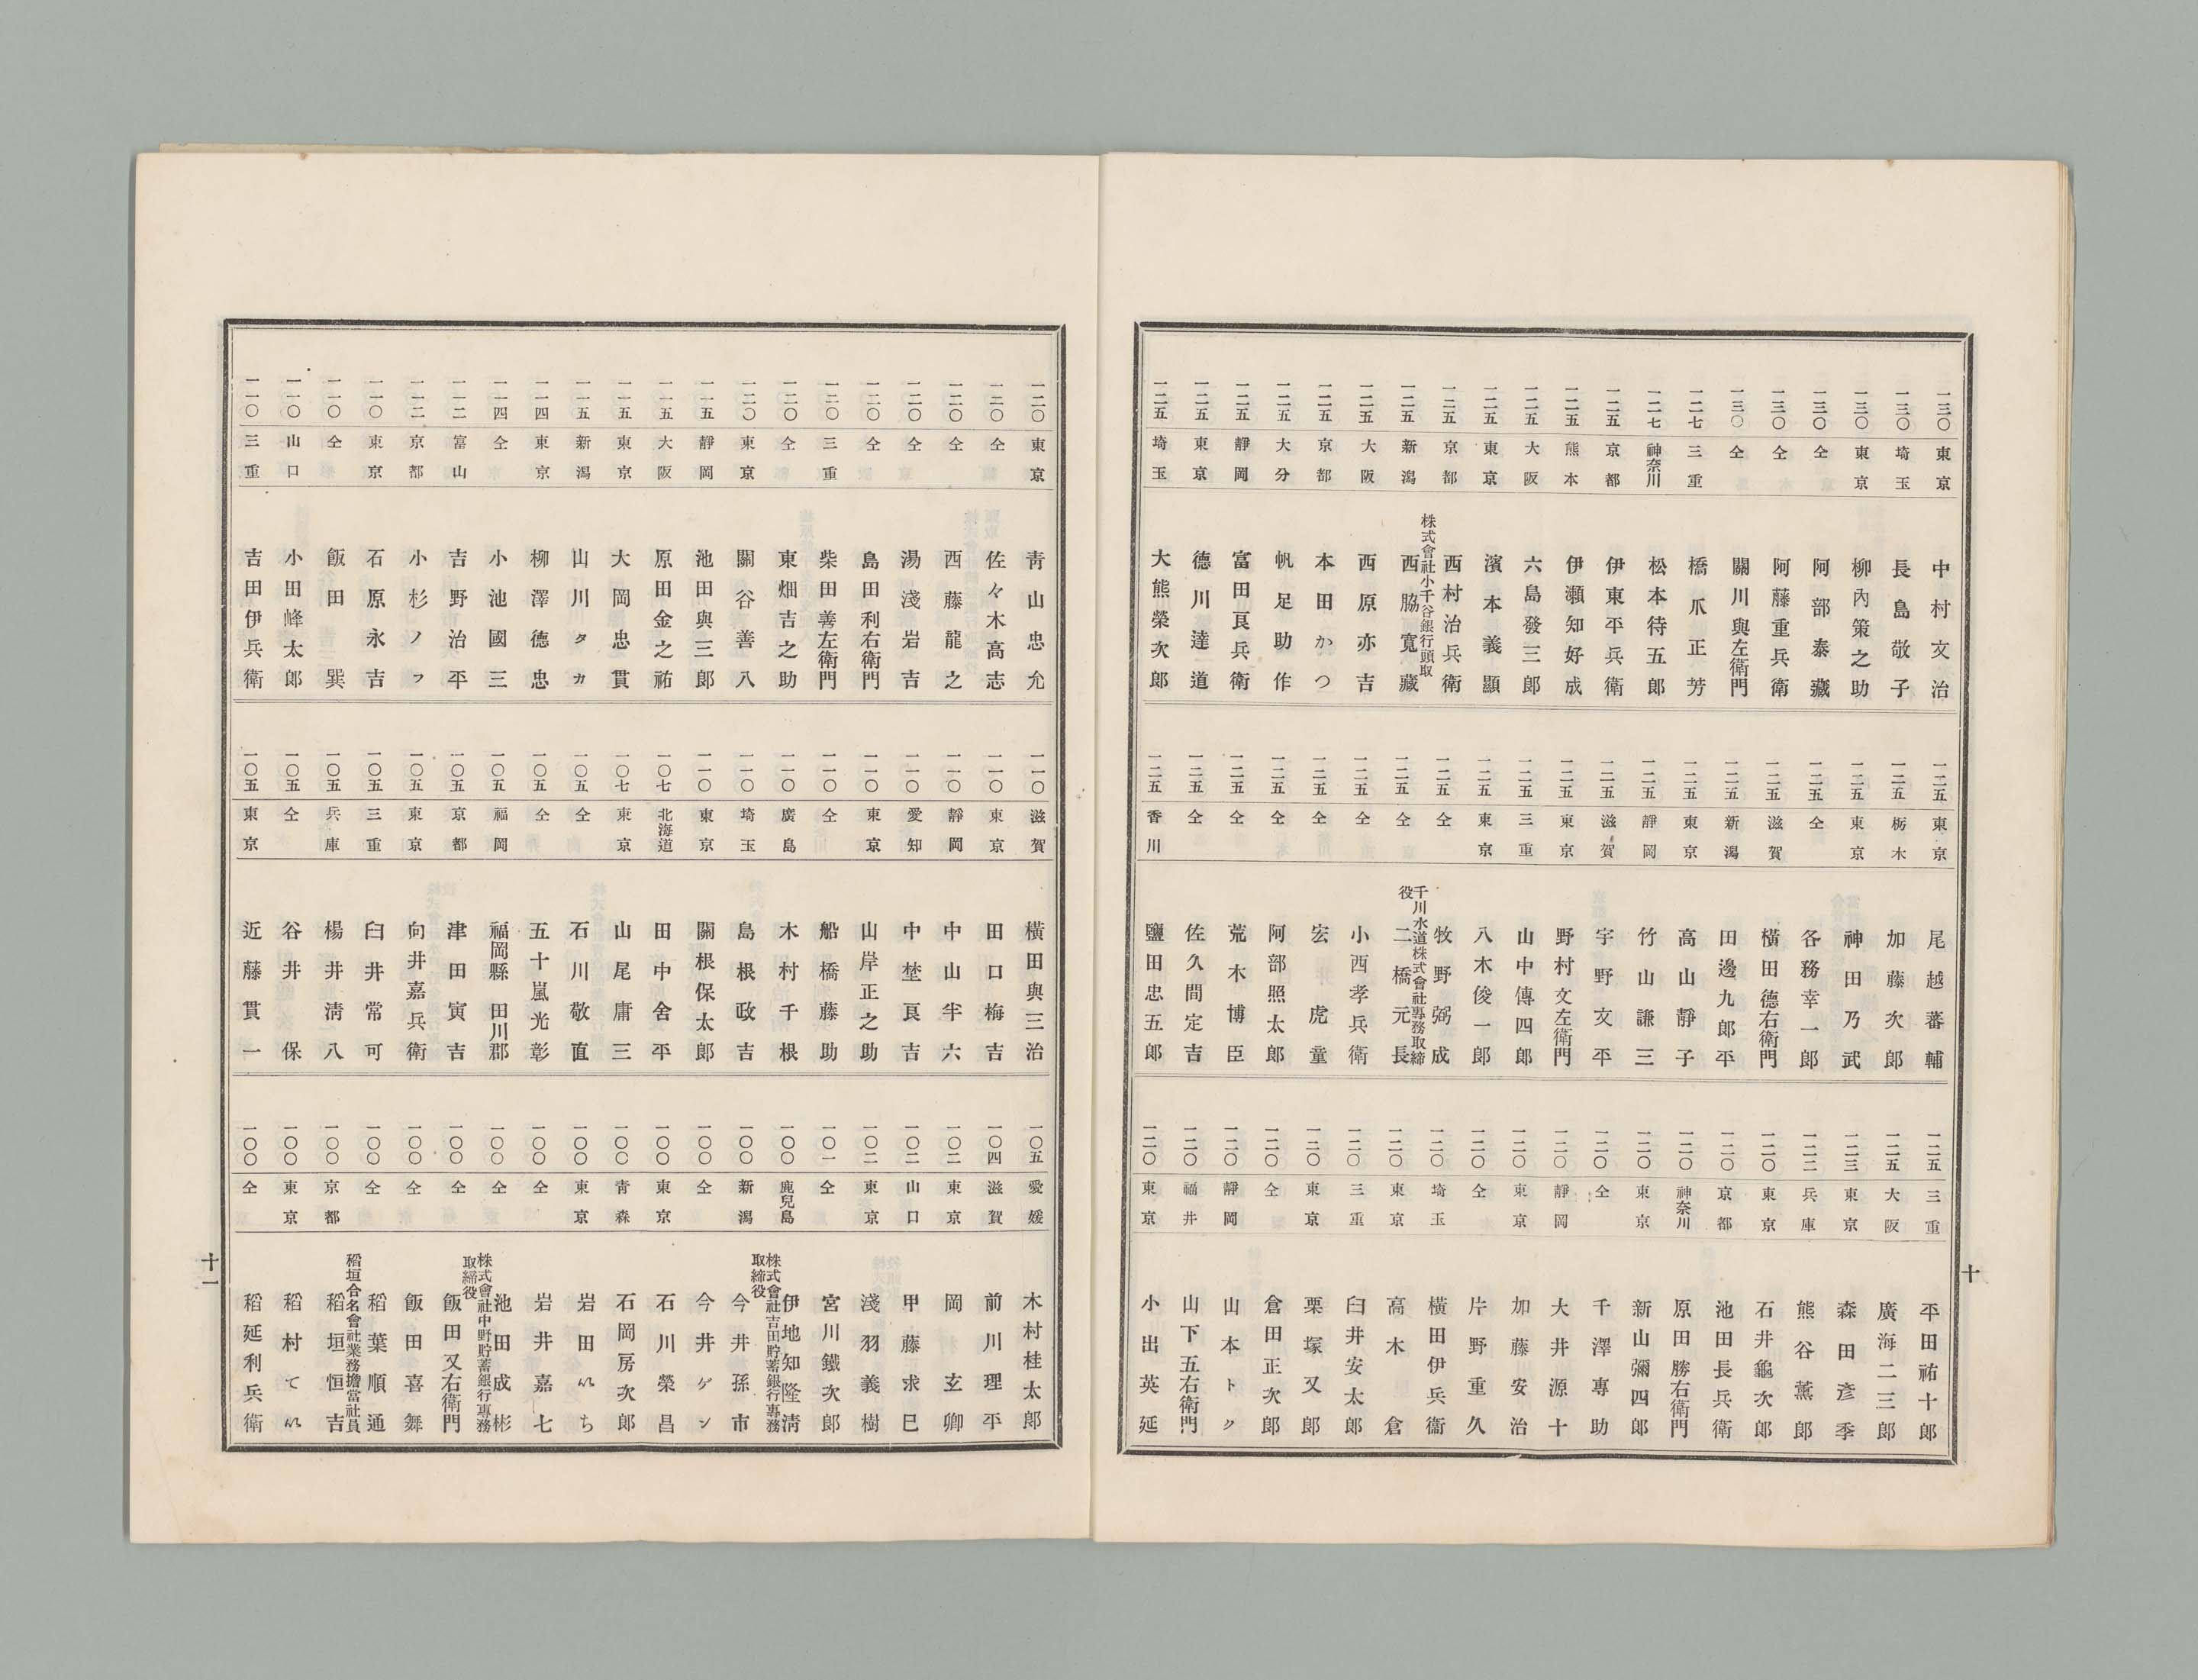 一三〇 東京 中村文治
一三〇 埼玉 長島敬子
一三〇 東京 柳內策之助
一三〇 仝 阿部泰藏
一三〇 仝 阿藤重兵衛
一三〇 仝 關川與左衛門
一二七 三重 橋爪正芳
一二七 神奈川 松本待五郎
一二五 京都 伊東平兵衛
一二五 熊本 伊瀬知好成
一二五 大阪 六島發三郎
一二五 東京 濱本義顯
一二五 京都 西村治兵衛
一二五 新潟 株式會社小千谷銀行頭取 西脇寬藏
一二五 大阪 西原亦吉
一二五 京都 本田かつ
一二五 大分 帆足助作
一二五 靜岡 富田良兵衛
一二五 東京 德川達道
一二五 埼玉 大熊榮次郎
一二五 東京 尾越蕃輔
一二五 栃木 加藤次郎
一二五 東京 神田乃武
一二五 仝 各務幸一郎
一二五 滋賀 橫田德右衛門
一二五 新潟 田邊九郎平
一二五 東京 高山靜子
一二五 靜岡 竹山謙三
一二五 滋賀 宇野文平
一二五 東京 野村文左衛門
一二五 三重 山中傳四郎
一二五 東京 八木俊一郎
一二五 仝 牧野弼成
一二五 仝 千川水道株式會社專務取締役 二橋元長
一二五 仝 小西孝兵衛
一二五 仝 宏虎童
一二五 仝 阿部照太郎
一二五 仝 荒木博臣
一二五 仝 佐久間定吉
一二五 香川 鹽田忠五郎
一二五 三重 平田祐十郎
一二五 大阪 廣海二三郎
一二三 東京 森田彥季
一二二 兵庫 熊谷薰郎
一二〇 東京 石井龜次郎
一二〇 京都 池田長兵衛
一二〇 神奈川 原田勝右衛門
一二〇 東京 新山彌四郎
一二〇 仝 千澤專助
一二〇 靜岡 大井源十
一二〇 東京 加藤安治
一二〇 仝 片野重久
一二〇 埼玉 橫田伊兵衞
一二〇 東京 高木倉
一二〇 三重 臼井安太郎
一二〇 東京 栗塚又郎
一二〇 仝 倉田正次郎
一二〇 靜岡 山本トク
一二〇 福井 山下五右衛門
一二〇 東京 小出英延
十
一二〇 東京 靑山忠允
一二〇 仝 佐々木高志
一二〇 仝 西藤龍之
一二〇 仝 湯淺岩吉
一二〇 仝 島田利右衛門
一二〇 三重 柴田善左衛門
一二〇 仝 東畑吉之助
一二〇 東京 關谷善八
一一五 靜岡 池田與三郎
一一五 大阪 原田金之祐
一一五 東京 大岡忠貫
一一五 新潟 山川タカ
一一四 東京 柳澤德忠
一一四 仝 小池國三
一一二 富山 吉野治平
一一二 京都 小杉ノフ
一一〇 東京 石原永吉
一一〇 仝 飯田巽
一一〇 山口 小田峰太郎
一一〇 三重 吉田伊兵衛
一一〇 滋賀 橫田與三治
一一〇 東京 田口梅吉
一一〇 靜岡 中山半六
一一〇 愛知 中埜良吉
一一〇 東京 山岸正之助
一一〇 仝 船橋藤助
一一〇 廣島 木村千根
一一〇 埼玉 島根政吉
一一〇 東京 關根保太郎
一〇七 北海道 田中舍平
一〇七 東京 山尾庸三
一〇五 仝 石川敬直
一〇五 仝 五十嵐光彰
一〇五 福岡 福岡縣田川郡
一〇五 京都 津田寅吉
一〇五 東京 向井嘉兵衛
一〇五 三重 臼井常可
一〇五 兵庫 楊井淸八
一〇五 仝 谷井保
一〇五 東京 近藤貫一
一〇五 愛媛 木村桂太郎
一〇四 滋賀 前川理平
一〇二 東京 岡玄卿
一〇二 山口 甲藤求巳
一〇二 東京 淺羽義樹
一〇一 仝 宮川鐵次郎
一〇〇 鹿兒島 伊地知隆淸
一〇〇 新潟 株式會社吉田貯蓄銀行專務取締役 今井孫市
一〇〇 仝 今井ゲン
一〇〇 東京 石川榮昌
一〇〇 靑森 石岡房次郎
一〇〇 東京 岩田いち
一〇〇 仝 岩井嘉七
一〇〇 仝 池田成彬
一〇〇 仝 株式會社中野貯蓄銀行專務取締役 飯田又右衛門
一〇〇 仝 飯田喜舞
一〇〇 仝 稻葉順通
一〇〇 京都 稻垣合名會社業務擔當社員 稻垣恒吉
一〇〇 東京 稻村てい
一〇〇 仝 稻延利兵衛
十一